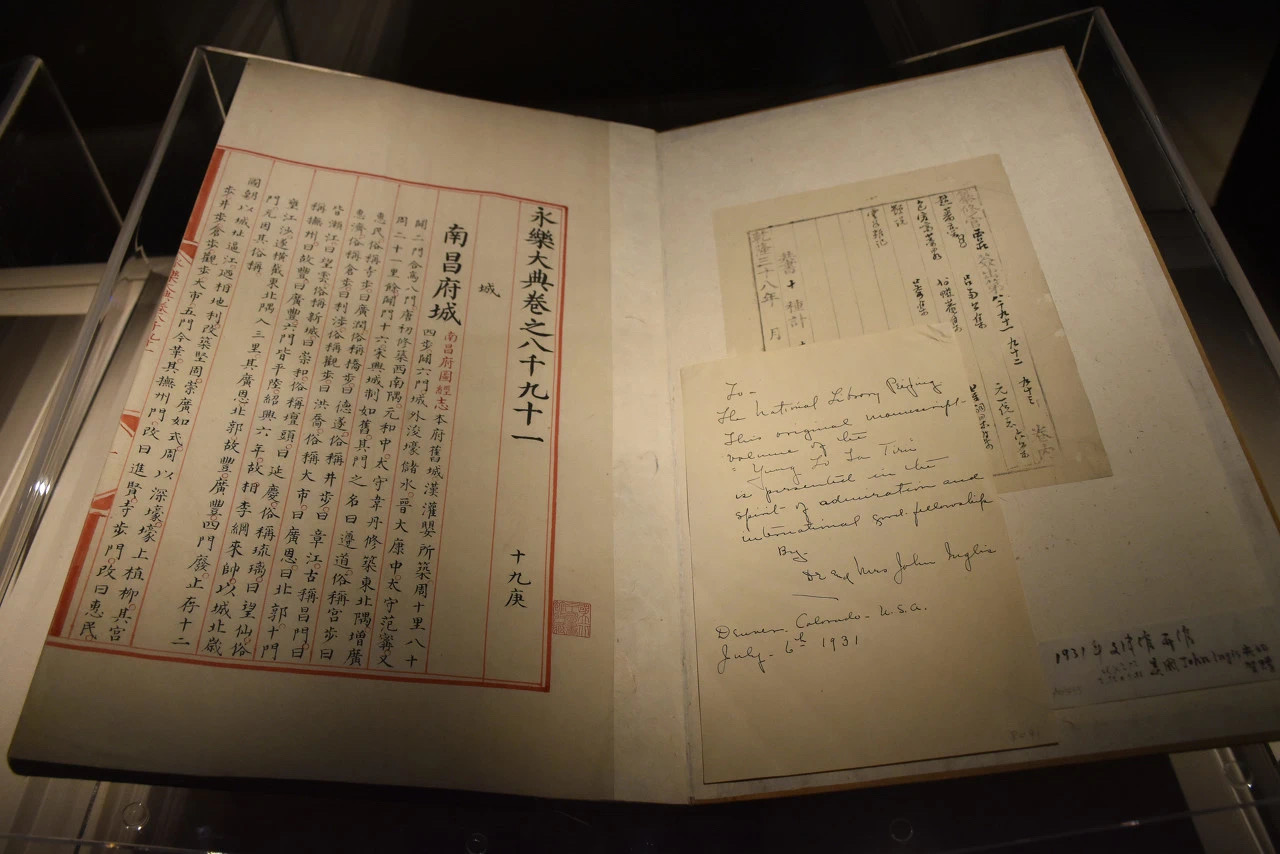 永樂大典卷之八千九十一 十九庚
城
南昌府城
南昌府圖經志本府舊城漢灌嬰所築周十里八十
四步開六門城外浚壕儲水晉大康中太守范甯又
開二門合為八門唐初修築西南隅元和中太守韋丹修築東北隅增廣
周二十一里餘開門十六宋興城制如舊其門之名曰遵道俗稱宮步曰
惠民俗稱寺步曰廣潤俗稱橋步曰德遂俗稱井步曰章江古稱昌門曰
惠濟俗稱倉步曰利涉俗稱觀步曰洪喬俗稱大市曰廣恩曰北郭十門
皆瀕江曰望雲俗稱新城曰崇和俗稱壇頭曰延慶俗稱琉璃曰望仙俗
稱撫州曰故豐曰廣豐六門皆平陸紹興六年故相李綱來帥以城北歲
壅江沙遂橫截東北隅入三里其廣恩北郭故豐廣豐四門廢止存十二
門元因其俗稱
國朝以城址逼江迺相地利改築堅周崇廣如式周以深壕壕上植柳其宮
步井步倉步觀步大市五門今革其撫州門改曰進賢寺步門改曰惠民
纂修官 簽出第八千九十一 九十二 九十三 卷內
共書十種計
乾隆三十八年 月
To-
The National Library Peiping
This original manuscript-
volume of the
"Yung Lo Ta Tien"
is presented in the
spirit of admiration and
international good-fellowship
By-
Dr and Mrs John Inglis
Denver, Colorado- U.S.A.
July- 6th 1931
1931年文津館 美國John Inglis